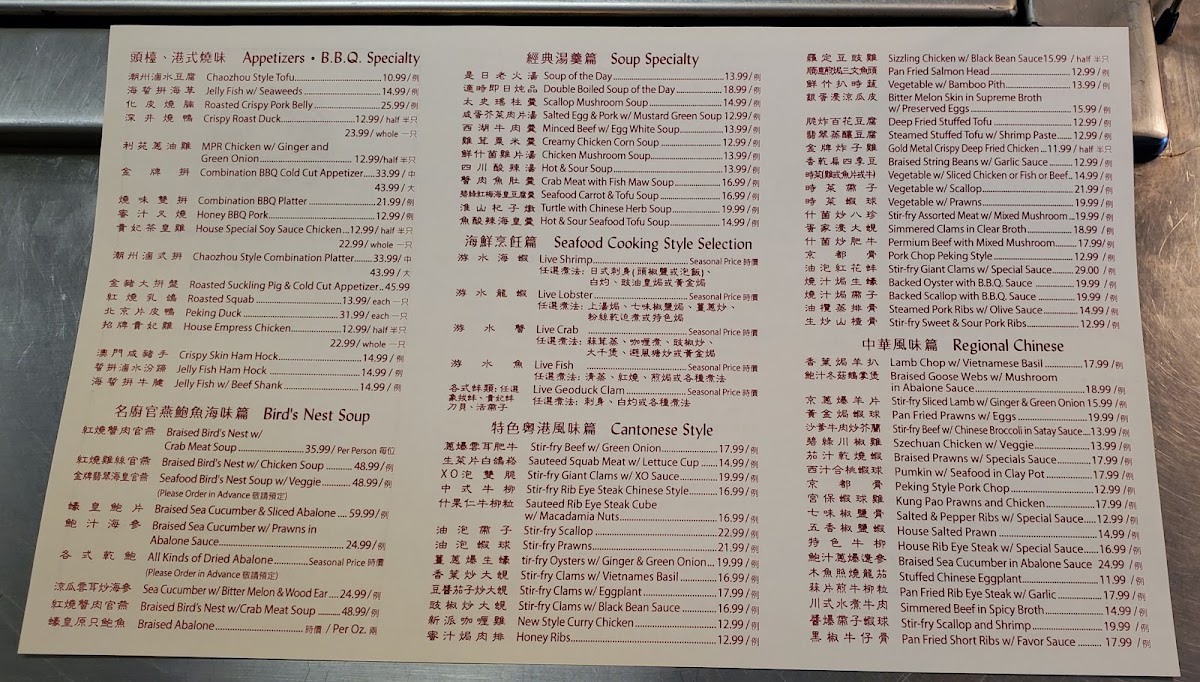 頭檯、港式燒味 Appetizers • B.B.Q. Specialty
潮州滷水豆腐 Chaozhou Style Tofu 10.99/例
海蜇拼海草 Jelly Fish w/ Seaweeds 14.99/例
化皮燒腩 Roasted Crispy Pork Belly 25.99/例
深井燒鴨 Crispy Roast Duck 12.99/ half 半只
23.99/ whole 一只
利苑蔥油雞 MPR Chicken w/ Ginger and
Green Onion 12.99/half 半只
金牌拼 Combination BBQ Cold Cut Appetizer 33.99/中
43.99/大
燒味雙拼 Combination BBQ Platter 21.99/例
蜜汁叉燒 Honey BBQ Pork 12.99/例
貴妃茶皇雞 House Special Soy Sauce Chicken 12.99/ half 半只
22.99/ whole 一只
潮州滷式拼 Chaozhou Style Combination Platter 33.99/中
43.99/大
金豬大拼盤 Roasted Suckling Pig & Cold Cut Appetizer 45.99
紅燒乳鴿 Roasted Squab 13.99/ each 一只
北京片皮鴨 Peking Duck 31.99/ each 一只
招牌貴妃雞 House Empress Chicken 12.99/ half 半只
22.99/ whole 一只
澳門咸豬手 Crispy Skin Ham Hock 14.99/例
蜇拼滷水汾蹄 Jelly Fish Ham Hock 14.99/例
海蜇拼牛腱 Jelly Fish w/ Beef Shank 14.99/例
名廚官燕鮑魚海味篇 Bird's Nest Soup
紅燒蟹肉官燕 Braised Bird's Nest w/
Crab Meat Soup 35.99/ Per Person 每位
紅燒雞絲官燕 Braised Bird's Nest w/ Chicken Soup 48.99/例
金牌翡翠海皇官燕 Seafood Bird's Nest Soup w/ Veggie 48.99/例
(Please Order in Advance 敬請預定)
蠔皇鮑片 Braised Sea Cucumber & Sliced Abalone 59.99/例
鮑汁海參 Braised Sea Cucumber w/ Prawns in
Abalone Sauce 24.99/例
各式乾鮑 All Kinds of Dried Abalone Seasonal Price 時價
(Please Order in Advance 敬請預定)
涼瓜雲耳炒海參 Sea Cucumber w/ Bitter Melon & Wood Ear 24.99/例
紅燒蟹肉官燕 Braised Bird's Nest w/Crab Meat Soup 48.99/例
蠔皇原只鮑魚 Braised Abalone 時價 / Per Oz. 兩
經典湯羹篇 Soup Specialty
是日老火湯 Soup of the Day 13.99/例
逢時即日炖品 Double Boiled Soup of the Day 18.99/例
太史瑤柱羹 Scallop Mushroom Soup 14.99/例
咸蛋芥菜肉片湯 Salted Egg & Pork w/ Mustard Green Soup 12.99/例
西湖牛肉羹 Minced Beef w/ Egg White Soup 13.99/例
雞茸粟米羹 Creamy Chicken Corn Soup 12.99/例
鮮什菌雞片湯 Chicken Mushroom Soup 13.99/例
四川酸辣湯 Hot & Sour Soup 13.99/例
蟹肉魚肚羹 Crab Meat with Fish Maw Soup 16.99/例
碧綠紅梅海皇豆腐羹 Seafood Carrot & Tofu Soup 16.99/例
淮山杞子燉 Turtle with Chinese Herb Soup 19.99/例
魚酸辣海皇羹 Hot & Sour Seafood Tofu Soup 14.99/例
海鮮烹飪篇 Seafood Cooking Style Selection
游水海蝦 Live Shrimp Seasonal Price 時價
任選煮法: 日式刺身(頭椒鹽或泡飯)、
白灼、豉油皇焗或黃金焗
游水龍蝦 Live Lobster Seasonal Price 時價
任選煮法: 上湯焗、七味椒鹽焗、薑蔥炒、
粉絲乾迫煮或特色焗
游水蟹 Live Crab Seasonal Price 時價
任選煮法: 蒜茸蒸、咖喱煮、豉椒炒、
大千煲、避風塘炒或黃金焗
游水魚 Live Fish Seasonal Price 時價
任選煮法: 清蒸、紅燒、煎焗或各種煮法
各式蚌類: 任選 Live Geoduck Clam Seasonal Price 時價
象拔蚌、貴妃蚌 任選煮法: 刺身、白灼或各種煮法
刀貝、活帶子
特色粵港風味篇 Cantonese Style
蔥爆雲耳肥牛 Stir-fry Beef w/ Green Onion 17.99/例
生菜片白鴿崧 Sauteed Squab Meat w/ Lettuce Cup 14.99/例
XO泡雙脆 Stir-fry Giant Clams w/ XO Sauce 19.99/例
中式牛柳 Stir-fry Rib Eye Steak Chinese Style 16.99/例
什果仁牛柳粒 Sauteed Rib Eye Steak Cube
w/ Macadamia Nuts 16.99/例
油泡帶子 Stir-fry Scallop 22.99/例
油泡蝦球 Stir-fry Prawns 21.99/例
薑蔥爆生蠔 tir-fry Oysters w/ Ginger & Green Onion 19.99/例
香葉炒大蜆 Stir-fry Clams w/ Vietnames Basil 16.99/例
豆醬茄子炒大蜆 Stir-fry Clams w/ Eggplant 17.99/例
豉椒炒大蜆 Stir-fry Clams w/ Black Bean Sauce 16.99/例
新派咖喱雞 New Style Curry Chicken 12.99/例
蜜汁焗肉排 Honey Ribs 12.99/例
羅定豆豉雞 Sizzling Chicken w/ Black Bean Sauce15.99 / half 半只
順德煎焗三文魚頭 Pan Fried Salmon Head 12.99 /例
鮮竹扒時蔬 Vegetable w/ Bamboo Pith 13.99 /例
銀蛋浸涼瓜皮 Bitter Melon Skin in Supreme Broth
w/ Preserved Eggs 15.99 /例
脆炸百花豆腐 Deep Fried Stuffed Tofu 12.99 /例
翡翠蒸釀豆腐 Steamed Stuffed Tofu w/ Shrimp Paste 12.99 /例
金牌炸子雞 Gold Metal Crispy Deep Fried Chicken 11.99 / half 半只
香乾扁四季豆 Braised String Beans w/ Garlic Sauce 12.99 /例
時菜(雞或魚片或牛) Vegetable w/ Sliced Chicken or Fish or Beef 14.99 /例
時菜帶子 Vegetable w/ Scallop 21.99 /例
時菜蝦球 Vegetable w/ Prawns 19.99 /例
什菌炒八珍 Stir-fry Assorted Meat w/ Mixed Mushroom 19.99 /例
蛋家浸大蜆 Simmered Clams in Clear Broth 18.99 /例
什菌炒肥牛 Permium Beef with Mixed Mushroom 17.99/例
京都骨 Pork Chop Peking Style 12.99 /例
油泡紅花蚌 Stir-fry Giant Clams w/ Special Sauce 29.00 /例
燒汁焗生蠔 Backed Oyster with B.B.Q. Sauce 19.99 /例
燒汁焗帶子 Backed Scallop with B.B.Q. Sauce 19.99 /例
油欖蒸排骨 Steamed Pork Ribs w/ Olive Sauce 14.99 /例
生炒山楂骨 Stir-fry Sweet & Sour Pork Ribs 12.99 /例
中華風味篇 Regional Chinese
香葉焗羊扒 Lamb Chop w/ Vietnamese Basil 17.99 /例
鮑汁冬菇鵝掌煲 Braised Goose Webs w/ Mushroom
in Abalone Sauce 18.99 /例
京蔥爆羊片 Stir-fry Sliced Lamb w/ Ginger & Green Onion 15.99 /例
黃金焗蝦球 Pan Fried Prawns w/ Eggs 19.99 /例
沙爹牛肉炒芥蘭 Stir-fry Beef w/ Chinese Broccoli in Satay Sauce 13.99 /例
碧綠川椒雞 Szechuan Chicken w/ Veggie 13.99 /例
茄汁乾燒蝦 Braised Prawns w/ Specials Sauce 17.99 /例
西汁合桃蝦球 Pumkin w/ Seafood in Clay Pot 17.99 /例
京都骨 Peking Style Pork Chop 12.99 /例
宮保蝦球雞 Kung Pao Prawns and Chicken 17.99 /例
七味椒鹽骨 Salted & Pepper Ribs w/ Special Sauce 12.99 /例
五香椒鹽蝦 House Salted Prawn 14.99 /例
特色牛柳 House Rib Eye Steak w/ Special Sauce 16.99 /例
鮑汁蔥爆遼參 Braised Sea Cucumber in Abalone Sauce 24.99 /例
木魚照燒龍茄 Stuffed Chinese Eggplant 11.99 /例
蒜片煎牛柳粒 Pan Fried Rib Eye Steak w/ Garlic 17.99 /例
川式水煮牛肉 Simmered Beef in Spicy Broth 14.99 /例
醬爆帶子蝦球 Stir-fry Scallop and Shrimp 19.99 /例
黑椒牛仔骨 Pan Fried Short Ribs w/ Favor Sauce 17.99 /例